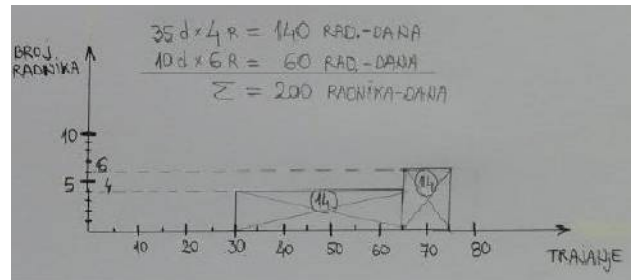 35 d × 4 R = 140 RAD.-DANA
10 d × 6 R = 60 RAD.-DANA
Σ = 200 RADNIKA-DANA
BROJ
RADNIKA
10
6
5 4
14 14
10 20 30 40 50 60 70 80
TRAJANJE